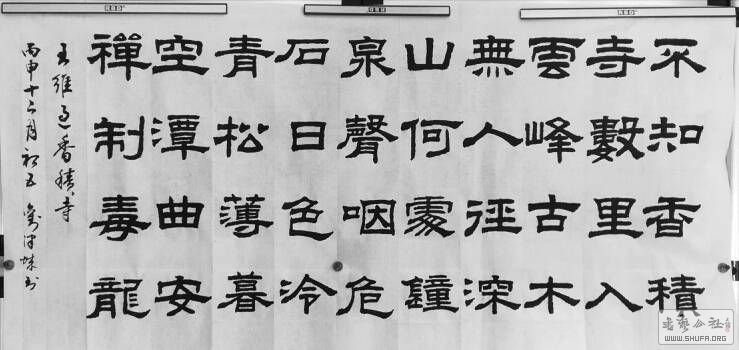 不知香積
寺數里入
雲峰古木
無人徑深
山何處鐘
泉聲咽危
石日色冷
青松薄暮
空潭曲安
禪制毒龍
王維過香積寺
丙申十二月初五
書藝公社
WWW.SHUFA.ORG